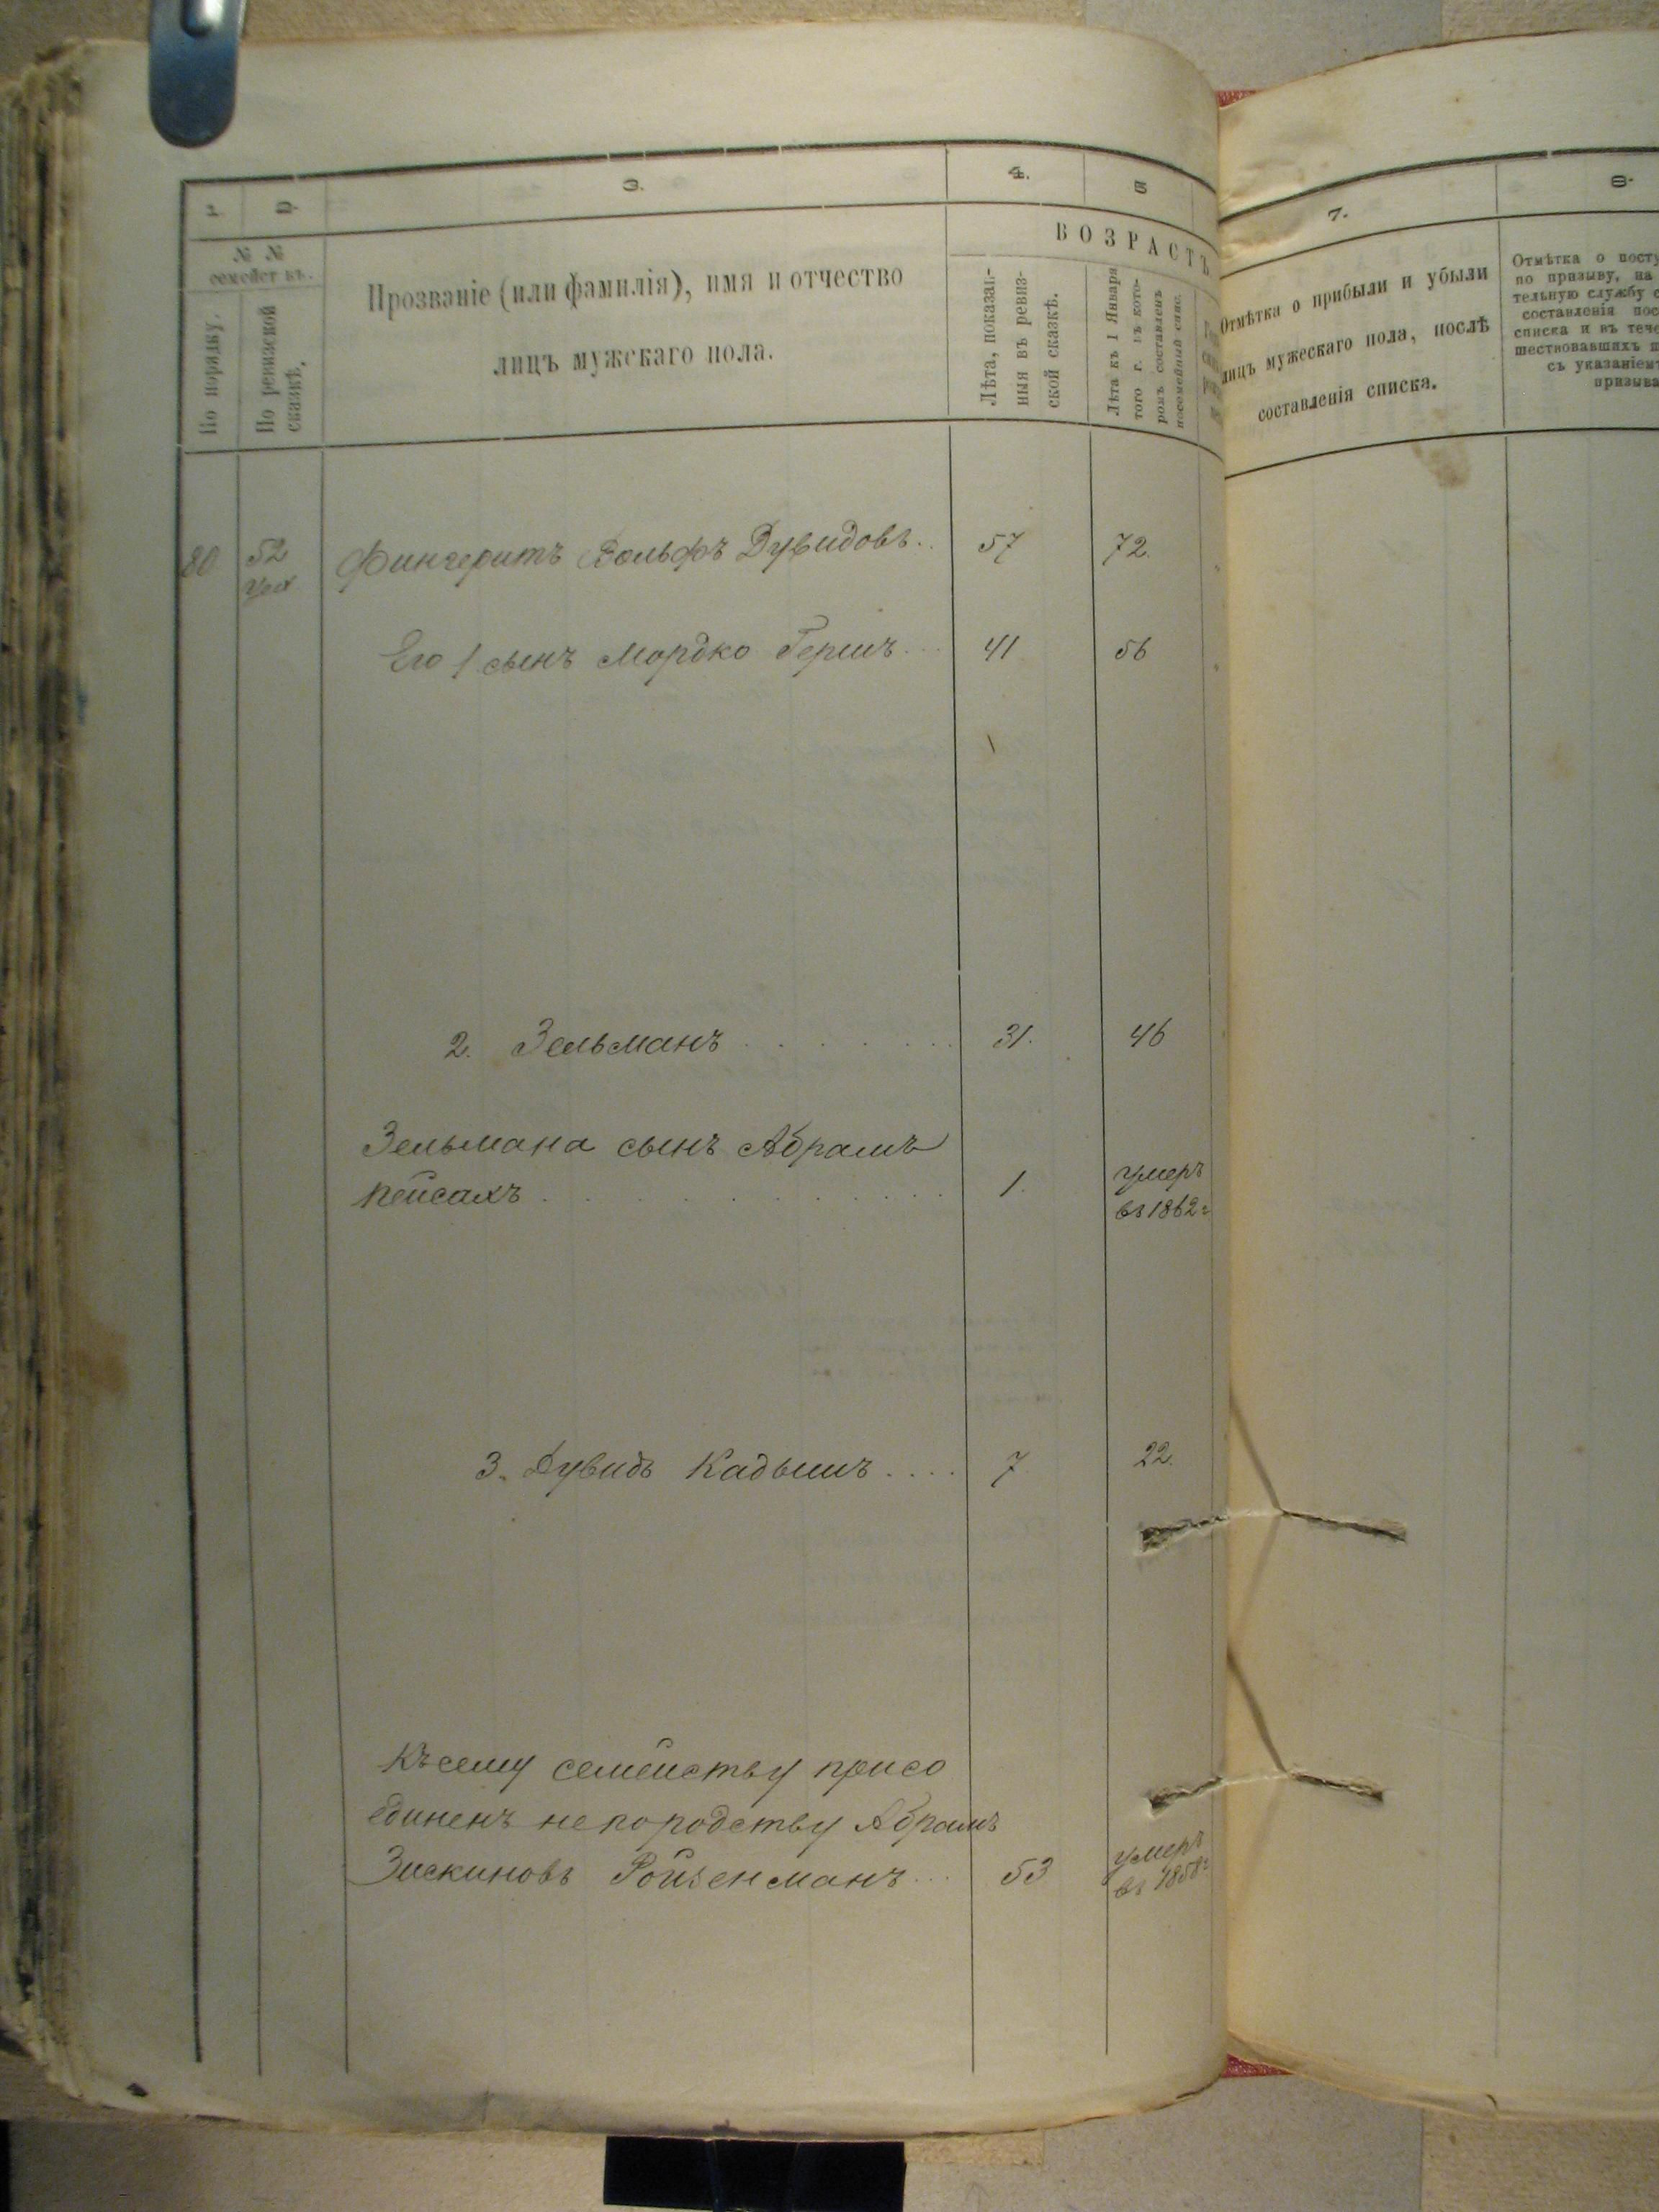 1. 2. 3. 4. 5
№ №
семействъ.
По порядку.
По ревизской
сказкѣ.
Прозваніе (или фамилія), имя и отчество
лицъ мужскаго пола.
ВОЗРАСТЪ
Лѣта, показан-
ныя въ ревиз-
ской сказкѣ.
Лѣта къ 1 Января
того г. въ кото-
ромъ составленъ
посемейный спис.
80 52 Фингеритъ Вольфъ Дувидовъ.. 57 72.
Его 1 сынъ Мордко Гершъ... 41 56
2. Зельманъ . . . . . . . . 31. 46
Зельмана сынъ Абрамъ
Пейсахъ . . . . . . . . . . 1. умеръ
въ 1862 г
3. Дувидъ Кадышъ.... 7 22.
Къ сему семейству присо
единенъ не по родству Абрамъ
Зискиновъ Ройзенманъ... 53 умеръ
въ 1858 г
7. 8.
Отмѣтка о прибыли и убыли
лицъ мужескаго пола, послѣ
составленія списка.
Отмѣтка о посту
по призыву, на
тельную службу с
составленія пос
списка и въ тече
шествовавшихъ п
съ указаніемъ
призыва